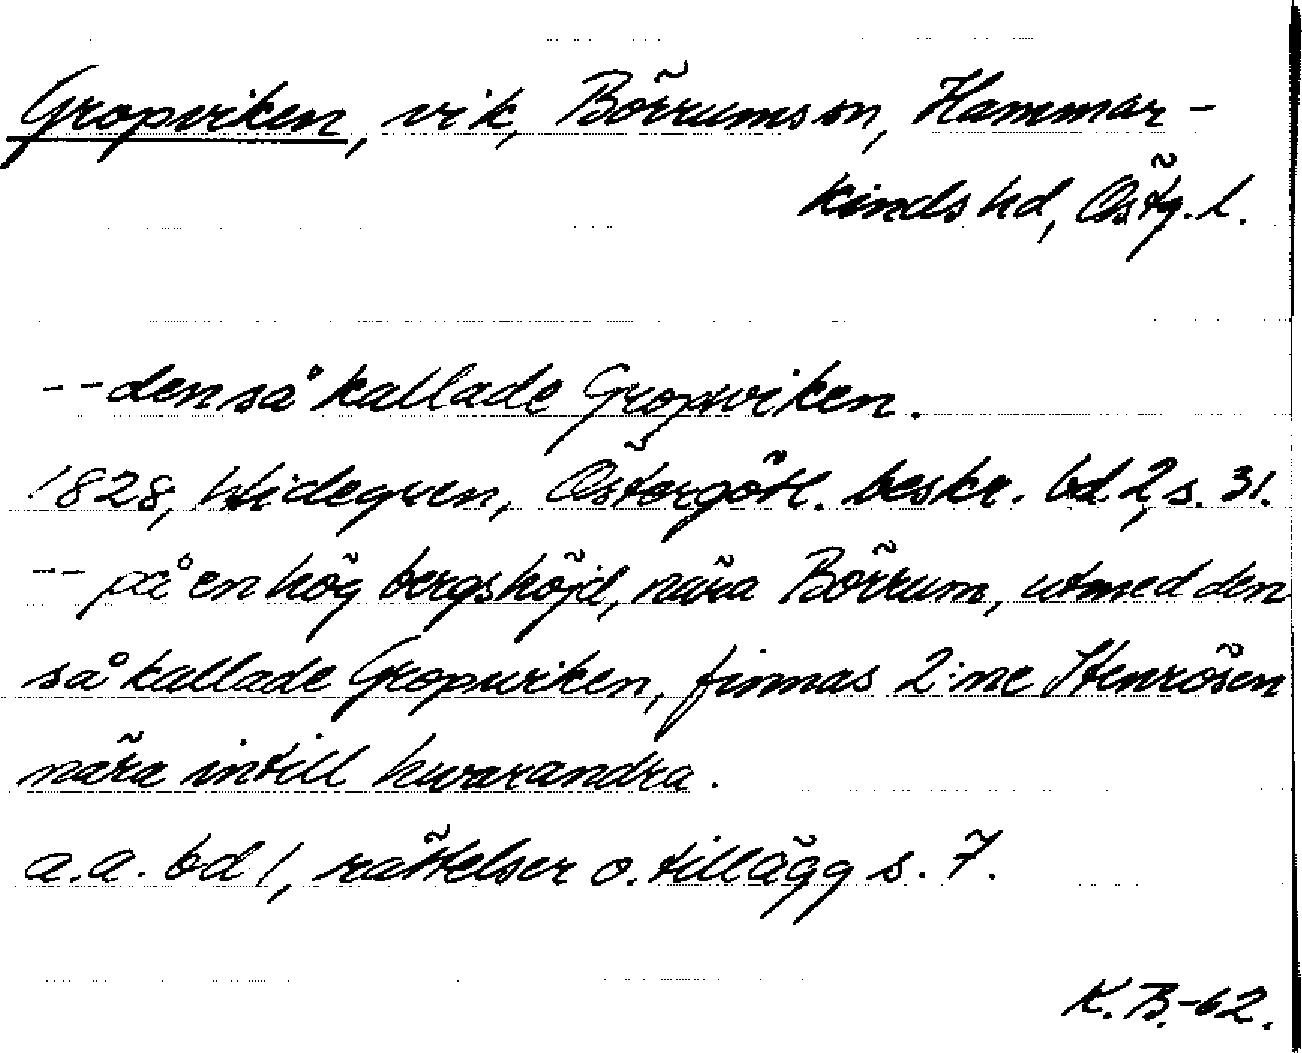 Gropviken, vik, Börrums sn, Hammar-
kinds hd, Östg. l.
-- den så kallade Gropwiken.
1828, Widegren, Östergötl. beskr. bd 2, s. 31.
-- på en hög bergshöjd, nära Börrum, utmed den
så kallade Gropwiken, finnas 2:ne Stenrösen
nära intill hwarandra.
a.a. bd 1, rättelser o. tillägg s. 7.
K.B.-62.